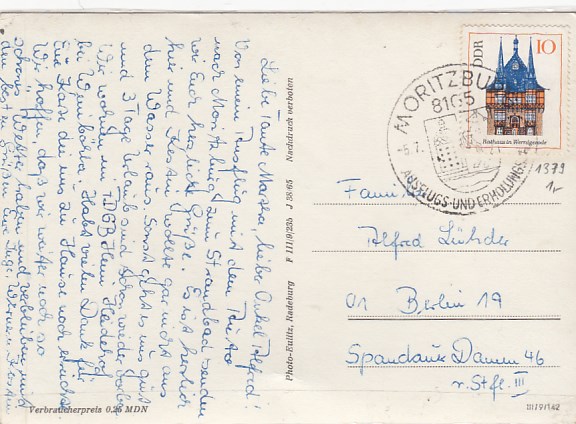 Liebe Tante Martha, lieber Onkel Alfred!
Von einem Ausflug mit dem Auto
nach Moritzburg zum Strandbad senden
wir Euch herzliche Grüße. Es ist herrlich
hier und Kersten wollte gar nicht aus
dem Wasser raus. Sonst geht es uns gut
und 3 Tage Urlaub sind schon wieder vorbei.
Wir wohnen im FDGB Heim Heidehof
bei Weinböhla. Habt vielen Dank für
Eure Karte die uns zu Hause noch erreichte.
Wir hoffen, daß wir weiter noch so
schönes Wetter haben und verbleiben mit
den besten Grüßen Eure Inge, Werner Kersten
Verbraucherpreis 0,25 MDN
Photo-Eulitz, Radeburg F III/9/235 J 38/65 Nachdruck verboten
DDR
10
Rathaus in Wernigerode
MORITZBU
8105
AUSFLUGS-UND ERHOLUNGS
1379
Familie
Alfred
01 Berlin 19
Spandauer Damm 46
v. Stfl. III